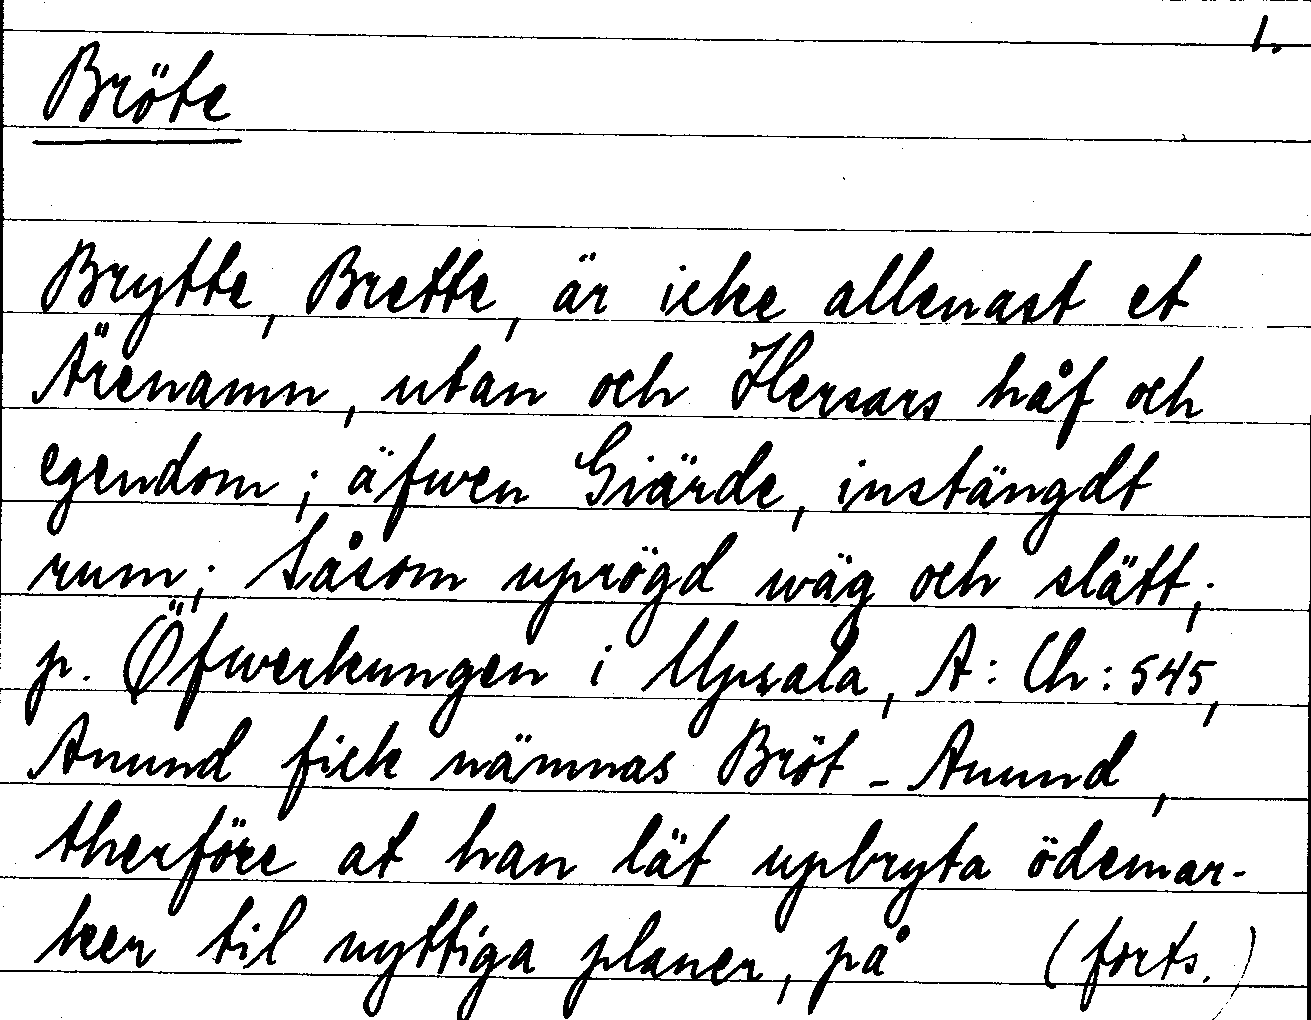 1.
Bröte
Brytte, Brette, är icke allenast et
Ärenamn, utan och Hersars håf och
egendom; äfwen Giärde, instängdt
rum; Såsom uprögd wäg och slätt,
p. Öfwerkungen i Upsala, A: Ch: 545,
Anund fick nämnas Bröt-Anund,
therföre at han lät upbryta ödemar-
ker til nyttiga planer, på (forts.)